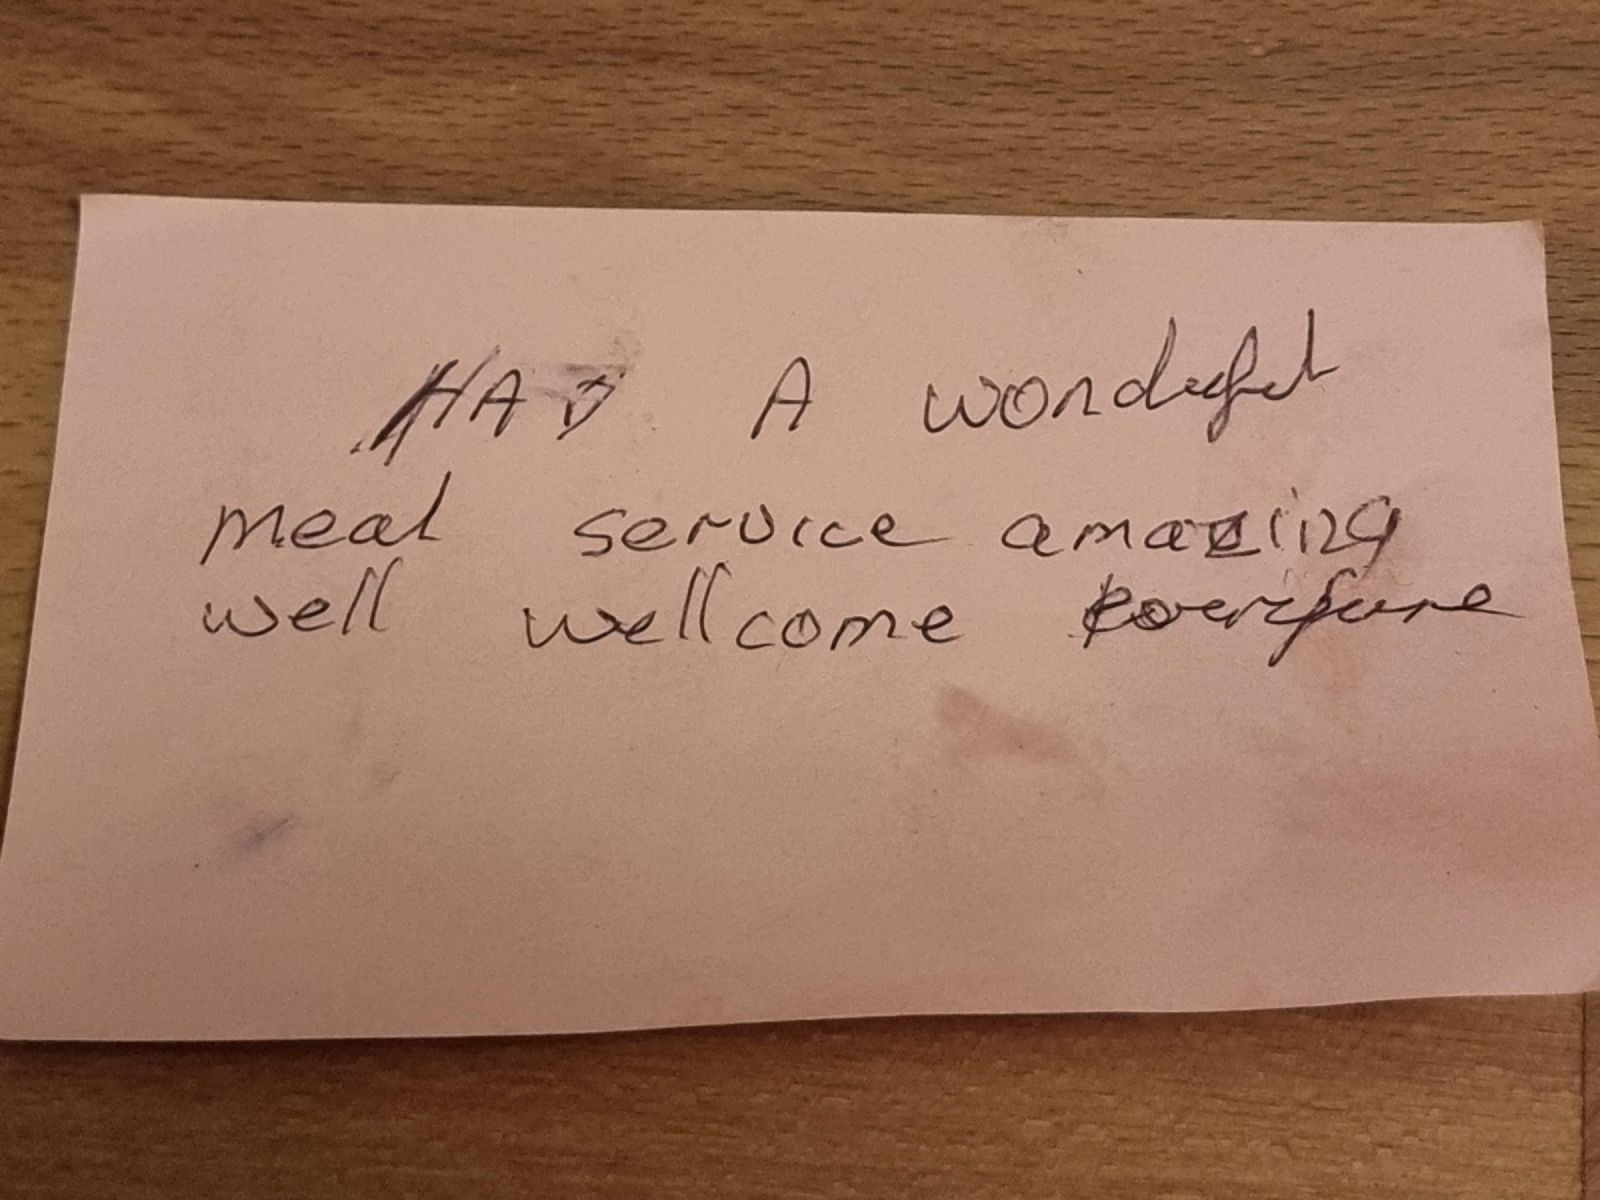 HAD A wonderful
meal service amazing
well wellcome